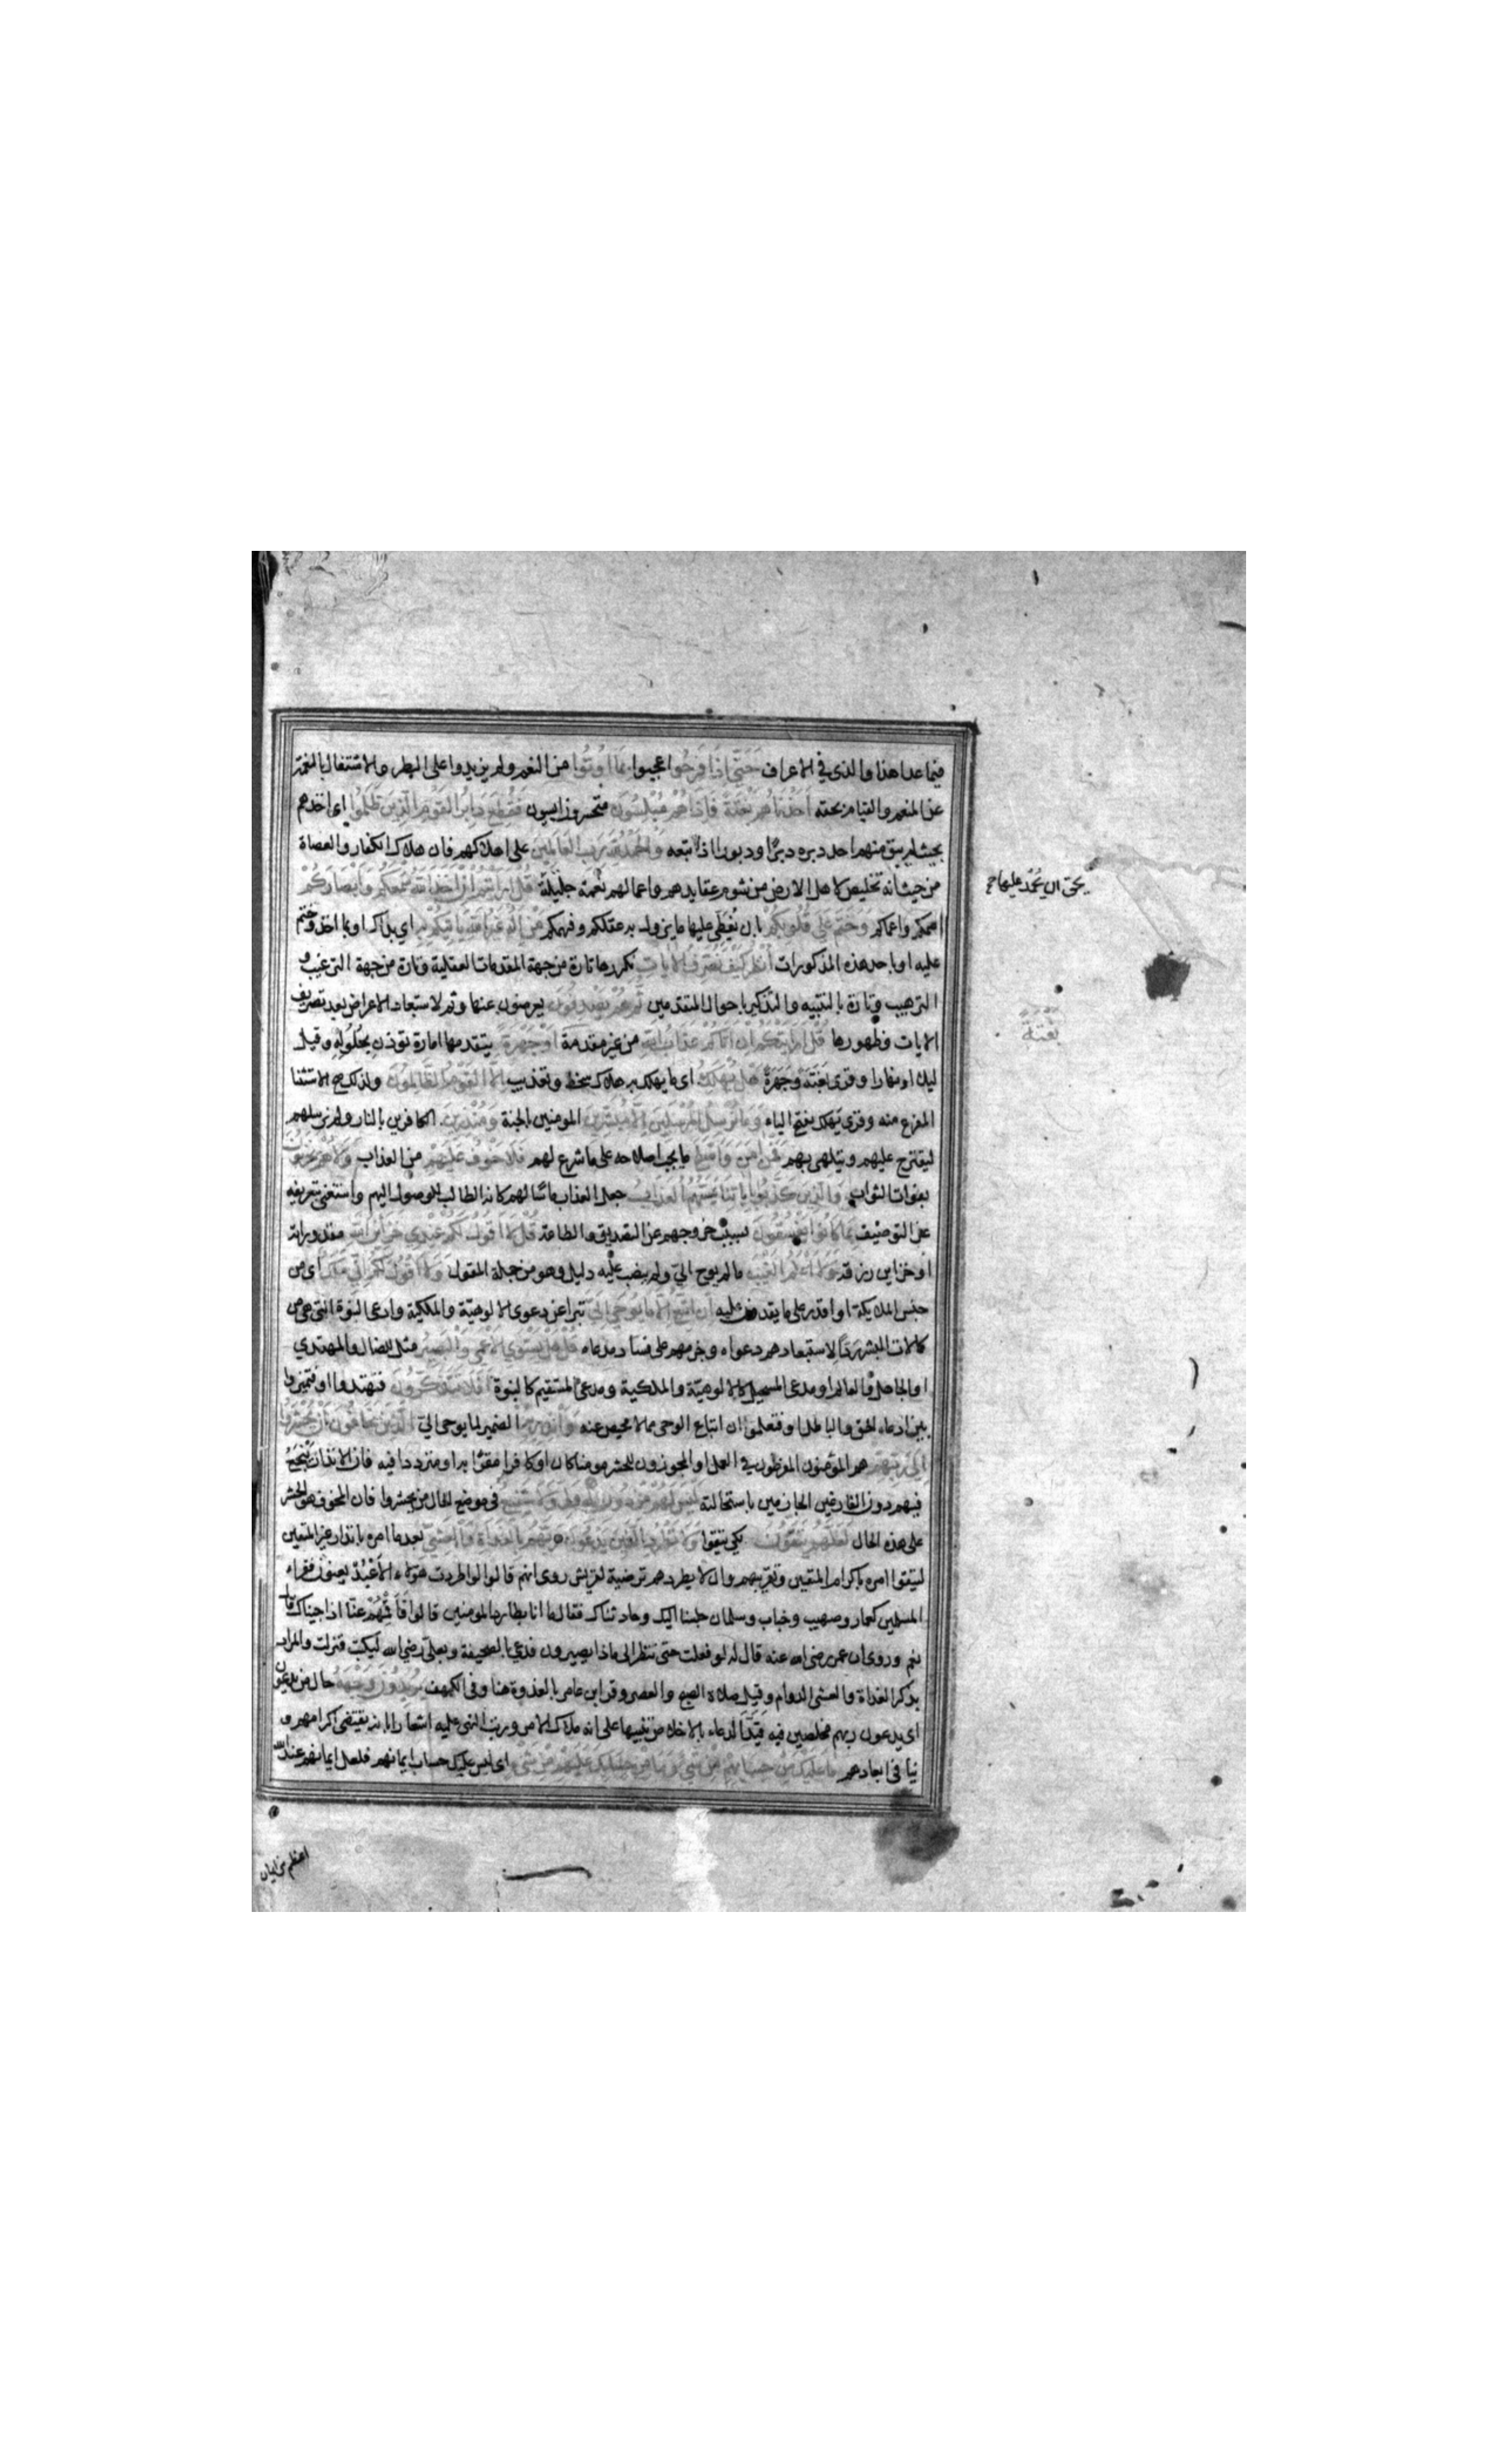 فيما عدا هذا والذي في الاعراف حَتَّي إِذَا فَرِحُوا اعجبوا بِمَا اُوتُوا من النعم ولم يزيدوا على البطر والاشتغال بالنعمة
عن المنعم والقيام بحقه أَخَذْنَاهُمْ بَغْتَةً فَإِذَا هُمْ مُبْلِسُونَ متحسرون ايسون فَقُطِعَ دَابِرُ القَوْمِ الَّذِينَ ظَلَمُوا اي اخذهم
بحيث لم يبق منهم احد دبره دبرًا ودبورا اذا تبعه وَالحَمْدُ لِلَّهِ رَبِّ العَالَمِينَ على اهلاكهم فان هلاك الكفار والعصاة
من حيث انه تخليص لاهل الارض من شوم عقايدهم واعمالهم نعمة جليلة قُلْ أَرَأَيْتُمْ إِنْ أَخَذَ اللَّهُ سَمْعَكُمْ وَأَبْصَارَكُمْ
اصمكم واعماكم وَخَتَمَ عَلَى قُلُوبِكُمْ بان يغطى عليها ما يزول به عقلكم وفهمكم مَنْ إِلَهٌ غَيْرُ اللَّهِ يَأْتِيكُمْ بِهِ اي بذاك او بما اخذ وختم
عليه او باحد هذه المذكورات أُنْظُرْ كَيْفَ نُصَرِّفُ الآيَاتِ نكررها تارة من جهة المقدمات العقلية وتارة من جهة الترغيب و
الترهيب وتارة بالتنبيه والتذكير باحوال المتقدمين ثُمَّ هُمْ يَصْدِفُونَ يعرضون عنها وثم لاستبعاد الاعراض بعد تصريف
الايات وظهورها قُلْ أَرَأَيْتَكُمْ إِنْ أَتَاكُمْ عَذَابُ اللَّهِ من غير مقدمة أَوْ جَهْرَةً يتقدمها امارة توذن بحلوله وقيل
ليلا او نهارا وقرئ بَغَتَةً وجَهَرَةً هَلْ يُهْلَكُ اي ما يهلك به هلاك سخط وتعذيب إِلَّا القَوْمُ الظَّالِمُونَ ولذلك صح الاستثنا
المفرغ منه وقرئ يَهلك بفتح الياء وَمَا نُرْسِلُ المُرْسَلِينَ إِلَّا مُبَشِّرِينَ المومنين بالجنة وَمُنْذِرِينَ الكافرين بالنار ولم نرسلهم
ليقترح عليهم ويتلهى بهم فَمَنْ آمَنَ وَأَصْلَحَ ما يجب اصلاحه على ما شرع لهم فَلَا خَوْفٌ عَلَيْهِمْ من العذاب وَلَا هُمْ يَحْزَنُونَ
بفوات الثواب وَالَّذِينَ كَذَّبُوا بِآيَاتِنَا يَمَسُّهُمُ العَذَابُ جعل العذاب ماسًّا لهم كانه الطالب للوصول اليهم واستغنى بتعريفه
عن التوصيف بِمَا كَانُوا يَفْسُقُونَ بسبب خروجهم عن التصديق والطاعة قُلْ لَا أَقُولُ لَكُمْ عِنْدِي خَزَائِنُ اللَّهِ مقدوراته
او خزاين رزقه وَلَا أَعْلَمُ الغَيْبَ مالم يوح الي ولم ينصب عليه دليل وهو من جملة المقول وَلَا أَقُولُ لَكُمْ إِنِّي مَلَكٌ اي من
جنس الملايكة او اقدر على ما يقدرون عليه إِنْ أَتَّبِعُ إِلَّا مَا يُوحَى إِلَيَّ تبرا عن دعوى الالوهيّة والملكية وادعى النبوة التي هي من
كمالات البشر ردّاً لاستبعادهم دعواه وجزمهم على فساد مدعاه قُلْ هَلْ يَسْتَوِي الأَعْمَى وَالبَصِيرُ مثل للضال والمهتدي
او الجاهل والعالم او مدعى المستحيل كالالوهيّة والملكية ومدعى المستقيم كالنبوة أَفَلَا تَتَفَكَّرُونَ فتهتدوا او فتميزوا
بين ادعاء الحق والباطل او فتعلموا ان اتباع الوحي مما لا محيص عنه وَأَنْذِرْ بِهِ الضمير لما يوحى الي الَّذِينَ يَخَافُونَ أَنْ يُحْشَرُوا
إِلَى رَبِّهِمْ هم المؤمنون المفرطون في العمل او المجوزون للحشر مومنا كان او كافرا مقرّا به او مترددا فيه فان الانذار ينجع
فيهم دون الفارغين الجازمين باستحالته لَيْسَ لَهُمْ مِنْ دُونِهِ وَلِيٌّ وَلَا شَفِيعٌ في موضع الحال من يحشروا فان المخوف هو الحشر
على هذه الحال لَعَلَّهُمْ يَتَّقُونَ لكي يتقوا وَلَا تَطْرُدِ الَّذِينَ يَدْعُونَ رَبَّهُمْ بِالغَدَاةِ وَالعَشِيِّ بعد ما امره بانذار غير المتقين
ليتقوا امره باكرام المتقين وتقريبهم وان لا يطردهم ترضية لقريش روى انهم قالوا لو طردت هؤلاء الاعْبُدَ يعنون فقراء
المسلمين كعمار وصهيب وخباب وسلمان جلسنا اليك وحادثناك فقال ما انا بطارد المومنين قالوا فاقمهم عنّا اذا جيناك قال
نعم وروى ان عمر رضي الله عنه قال له لو فعلت حتى ننظر الى ماذا يصيرون فدعى بالصحيفة وبعليّ رضي الله ليكتب فنزلت والمراد
بذكر الغداة والعشي الدوام وقيل صلاة الصبح والعصر وقرا ابن عامر بالغدوة هنا وفي الكهف يُرِيدُونَ وَجْهَهُ حال من يدعون
اي يدعون ربهم مخلصين فيه قيّد الدعاء بالاخلاص تنبيها على انه ملاك الامر ورتب النهي عليه اشعارا بانه يقتضى اكرامهم و
ينافي ابعادهم مَا عَلَيْكَ مِنْ حِسَابِهِمْ مِنْ شَيْءٍ وَمَا مِنْ حِسَابِكَ عَلَيْهِمْ مِنْ شَيْءٍ اي ليس عليك حساب ايمانهم فلعل ايمانهم عند الله
بحق ال محمد عليها
بَغْتَةً
اعظم من ايمان